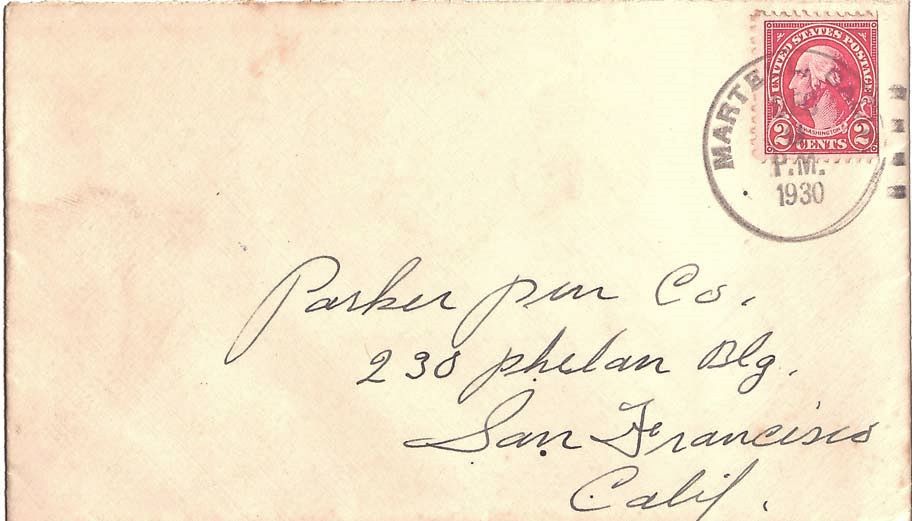 UNITED STATES POSTAGE
WASHINGTON
2 CENTS 2
MARTE
P.M.
1930
Parker pen Co.
238 phelan Blg.
San Francisco
Calif.